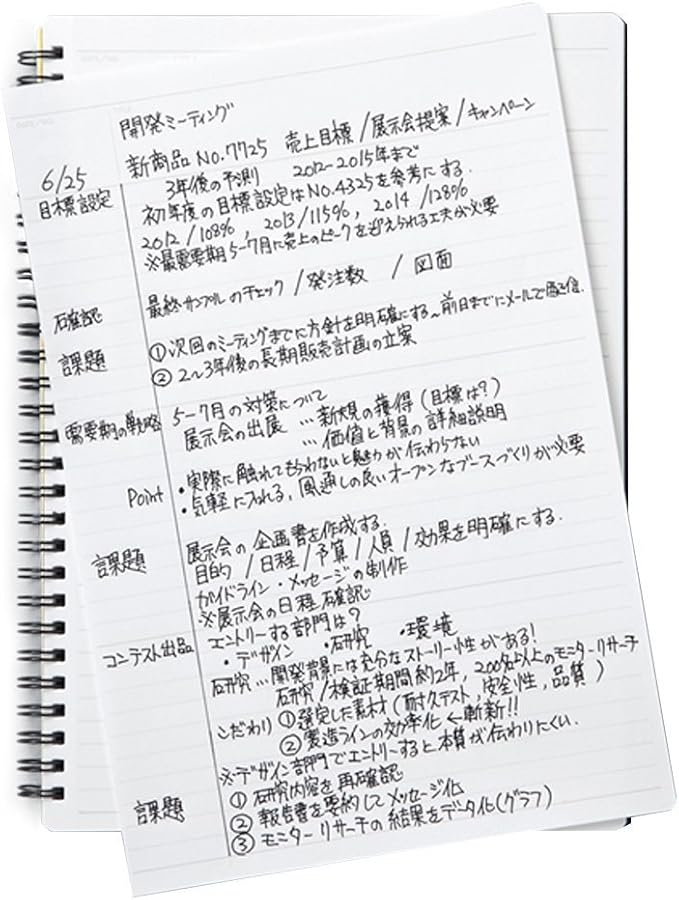 開発ミーティング
6/25 新商品 No.7725 売上目標/展示会提案/キャンペーン
目標設定 3年後の予測 2012-2015年まで
初年度の目標設定はNo.4325を参考にする.
2012/108%, 2013/115%, 2014/128%
※最需要期5-7月に売上のピークを迎えられる工夫が必要
確認 最終サンプルのチェック/発注数 /図面
課題 ①次回のミーティングまでに方針を明確にする~前日までにメールで配信.
②2~3年後の長期販売計画の立案
需要期の戦略 5-7月の対策について
展示会の出展 …新規の獲得(目標は?)
…価値と背景の詳細説明
Point ・実際に触れてもらわないと魅力が伝わらない
・気軽に入れる、風通しの良いオープンなブースづくりが必要
課題 展示会の企画書を作成する.
目的/日程/予算/人員/効果を明確にする.
ガイドライン・メッセージの制作
※展示会の日程確認
コンテスト出品 エントリーする部門は?
・デザイン ・研究 ・環境
研究…開発背景には充分なストーリー性がある!
研究/検証期間約2年,200名以上のモニターリサーチ
こだわり ①選定した素材(耐久テスト,安全性,品質)
②製造ラインの効率化←斬新!!
※デザイン部門でエントリーすると本質が伝わりにくい.
課題 ①研究内容を再確認
②報告書を要約してメッセージ化
③モニターリサーチの結果をデータ化(グラフ)